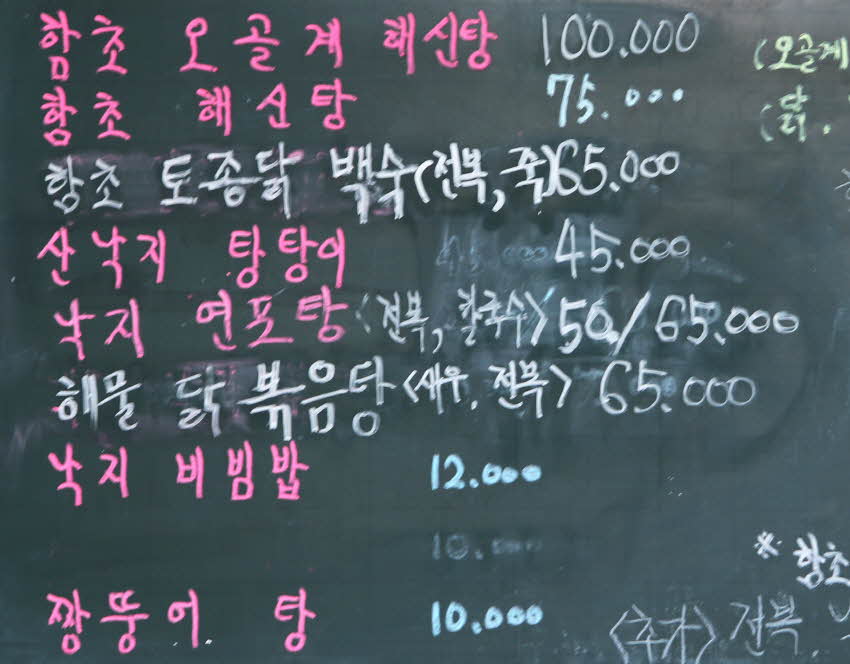 함초 오골계 해신탕 100.000
(오골계
함초 해신탕 75.000
(닭.
함초 토종닭 백숙(전복,죽)65.000
산낙지 탕탕이 45.000
낙지 연포탕 <전복, 칼국수> 50./65.000
해물 닭볶음탕 <새우. 전복> 65.000
낙지 비빔밥 12.000
10.000
※ 함초
짱뚱어 탕 10.000
<추가> 전복.